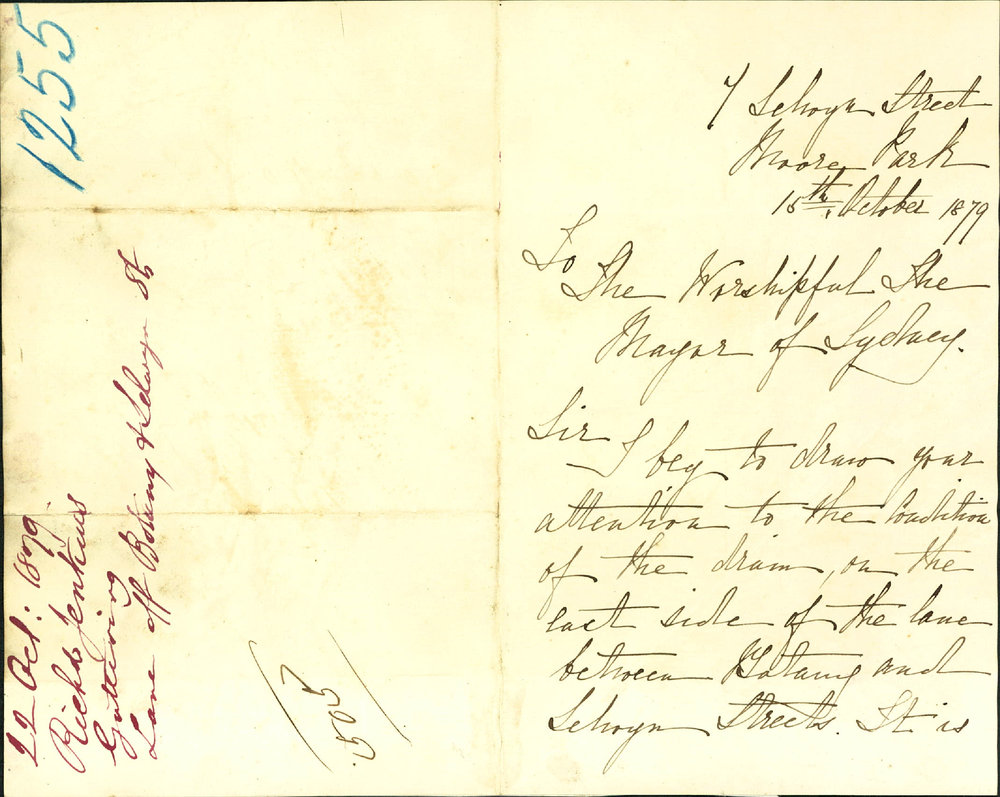 1255
22 Oct: 1879
Richd Jenkins
Guttering
Lane off Botany & Selwyn St
7 Selwyn Street
Moore Park
15th, October 1879
To
The Worshipful The
Mayor of Sydney.
Sir
I beg to draw your
attention to the Condition
of the drain, on the
east side of the lane
between Botany and
Selwyn Streets. It is